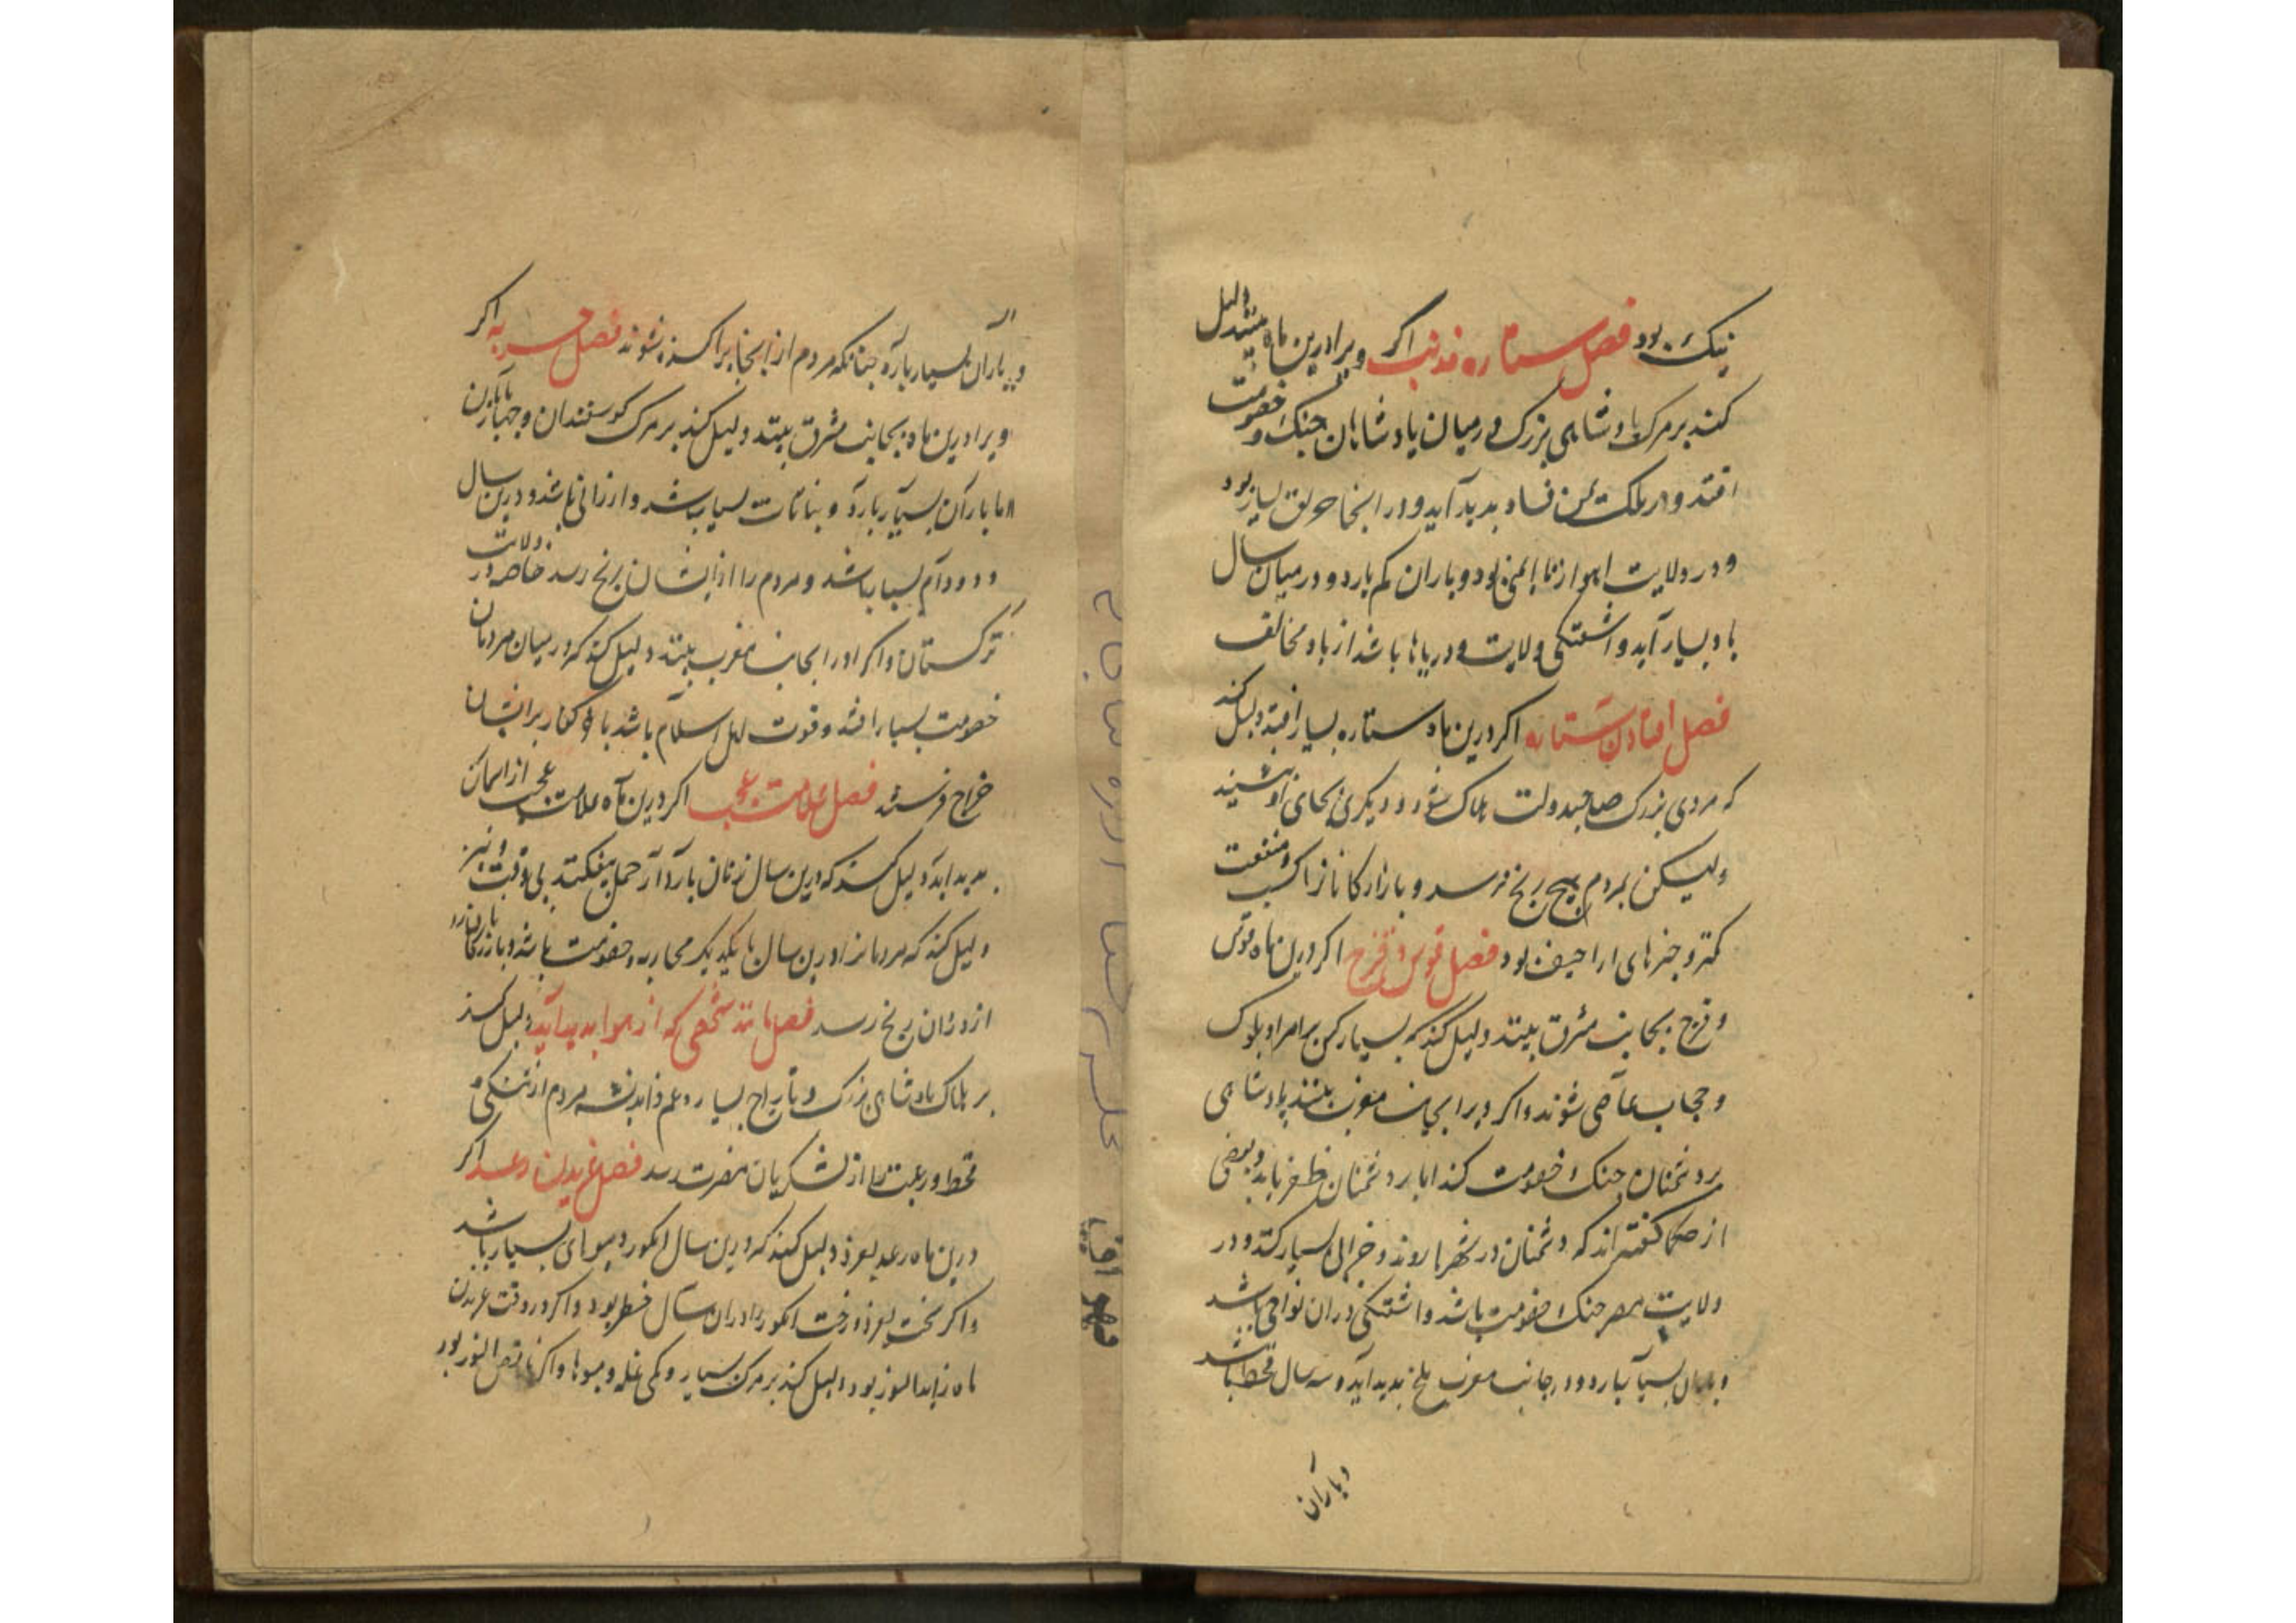 نیک بود فصل ستاره ذو ذنب اگر ویرا درین ماه بینند دلیل
کند بر مرک پادشاهی بزرک و در میان پادشاهان جنک و خصومت
افتد و در ملکت یمن فساد پدید آید و در انجا بسیار بود
و در ولایت اهواز نا ایمنی بود و باران کم بارد و در میان سال
باد بسیار آید و اشفتکی ولایت و دریاها باشد از باد مخالف
فصل افتادن ستاره اکر درین ماه ستاره بسیار افتد دلیل کند
که مردی بزرک صاحبدولت هلاک شود و دیکری بجای او نشیند
ولیکن بمردم هیچ رنج نرسد و بازارکانانرا کسب و منفعت
کمتر و بود فصل قوس و قزح اکر درین ماه قوس
و قزح بجانب مشرق بینند دلیل کند که بسیار کس بر امرا و ملوک
و حجاب عاصی شوند و اکر ویرا بجانب مغرب بینند پادشاهی
بر دشمنان جنک و خصومت کند اما بر دشمنان ظفر یابد و بعضی
از حکما کفته اند که دشمنان در شهرها روند و خرابی بسیار کنند و در
ولایت مصر جنک و خصومت باشد و اشفتکی دران نواحی باشد
و باران بسیار بارد و در جانب مغرب ملخ پدید آید و سه سال قحط باشد
و باران
و باران بسیار بارد چنانکه مردم از انجا پراکنده شوند فصل حربه اکر
ویرا درین ماه بجانب مشرق بینند دلیل کند بر مرک کوسفندان و چهارپایان
اما باران بسیار بارد و نباتات بسیار باشد و ارزانی باشد و درین سال
دد و دام بسیار باشد و مردم را از ایشان رنج رسد خاصه در ولایت
ترکستان و اکر او را بجانب مغرب بینند دلیل کند که در میان مردمان
خصومت بسیار افتد و قوت اهل اسلام باشد تا کفار بر ایشان
خراج فرستند فصل علامت عجب اکر درین ماه علامت عجب از اسمان
پدید اید دلیل کند که درین سال زنان باردار حمل بیفکنند بی وقت و نیز
دلیل کند که مردمانرا درین سال با یکدیکر محاربه و خصومت باشد و بازرکانانرا
از دزدان رنج رسد فصل مانند شخصی که از هوا پدید آید دلیل کند
بر هلاک پادشاهی بزرک و تاراج بسیار و غم و اندیشه مردم از تنکی و
قحط و رعیت را از لشکریان مضرت رسد فصل غریدن رعد اکر
درین ماه رعد بغرد دلیل کند که درین سال انکور و میوهای بسیار باشد
و اکر سخت بغرد درخت انکور را دران سال خطر بود و اکر در وقت غریدن
ماه زایدالنور بود دلیل کند بر مرک بسیار و کمی غله و میوها و اکر ناقص النور بود